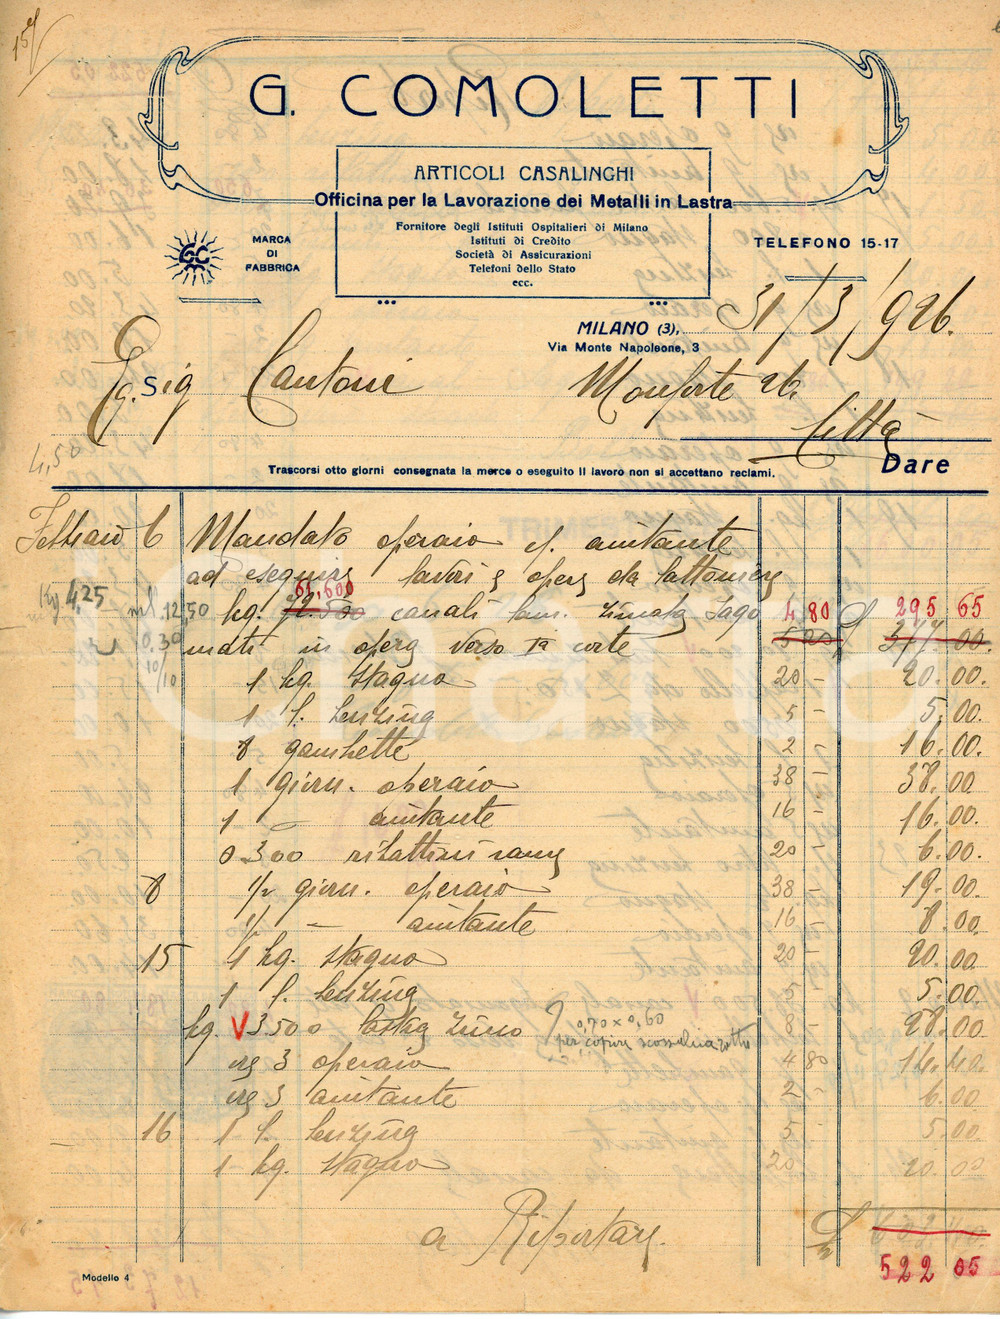 G. COMOLETTI
ARTICOLI CASALINGHI
Officina per la Lavorazione dei Metalli in Lastra
Fornitore degli Istituti Ospitalieri di Milano
Istituti di Credito
Società di Assicurazioni
Telefoni dello Stato
ecc.
MARCA
DI
FABBRICA
GC
TELEFONO 15-17
MILANO (3), 31/3/926.
Via Monte Napoleone, 3
Eg. Sig Cantoni Monforte 26.
Città
4,50
Trascorsi otto giorni consegnata la merce o eseguito il lavoro non si accettano reclami.
Dare
Febbraio 6 Mandato operaio e aiutante
ad eseguire lavori e opere da lattoniere
61,600
Kg 4,25 ml. 12,50 kg. canali lam. zincata sago 4 80 295 65
0.30 mati in opera verso Iª corte 377.00
10/10
1 kg. stagno 20 - 20.00.
1 l. benzina 5 - 5.00.
8 gambette 2 - 16.00.
1 giorn. operaio 38 - 38.00.
1 - aiutante 16 - 16.00.
0 300 ribattini rame 20 - 6.00.
8 1/2 giorn. operaio 38 - 19.00.
1/2 - aiutante 16 - 8.00.
15 1 kg. stagno 20 - 20.00.
1 l. benzina 5 5.00.
kg. V 3.500 lastra zinco 8 - 28.00.
0,70 x 0,60
per coprire scossalina rotta
ore 3 operaio 4 80 14.40.
ore 3 aiutante 2 - 6.00.
16 1 l. benzina 5 - 5.00.
1 kg. stagno 20 20.00
a Riportare.
522 05
Modello 4